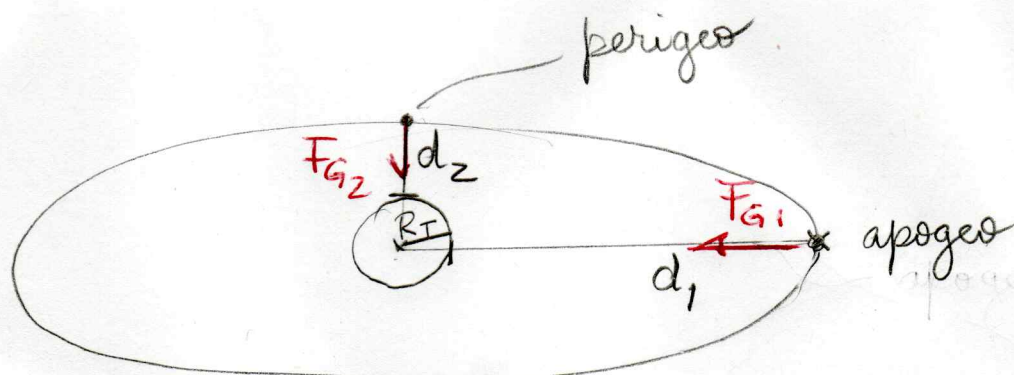 perigeo
F_G2 d_2
R_T
F_G1
d_1
apogeo